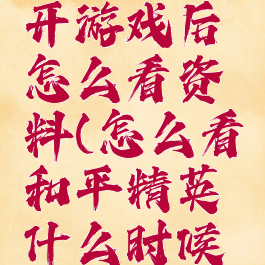 开游戏后
怎么看资
料(怎么看
和平精英
什么时候